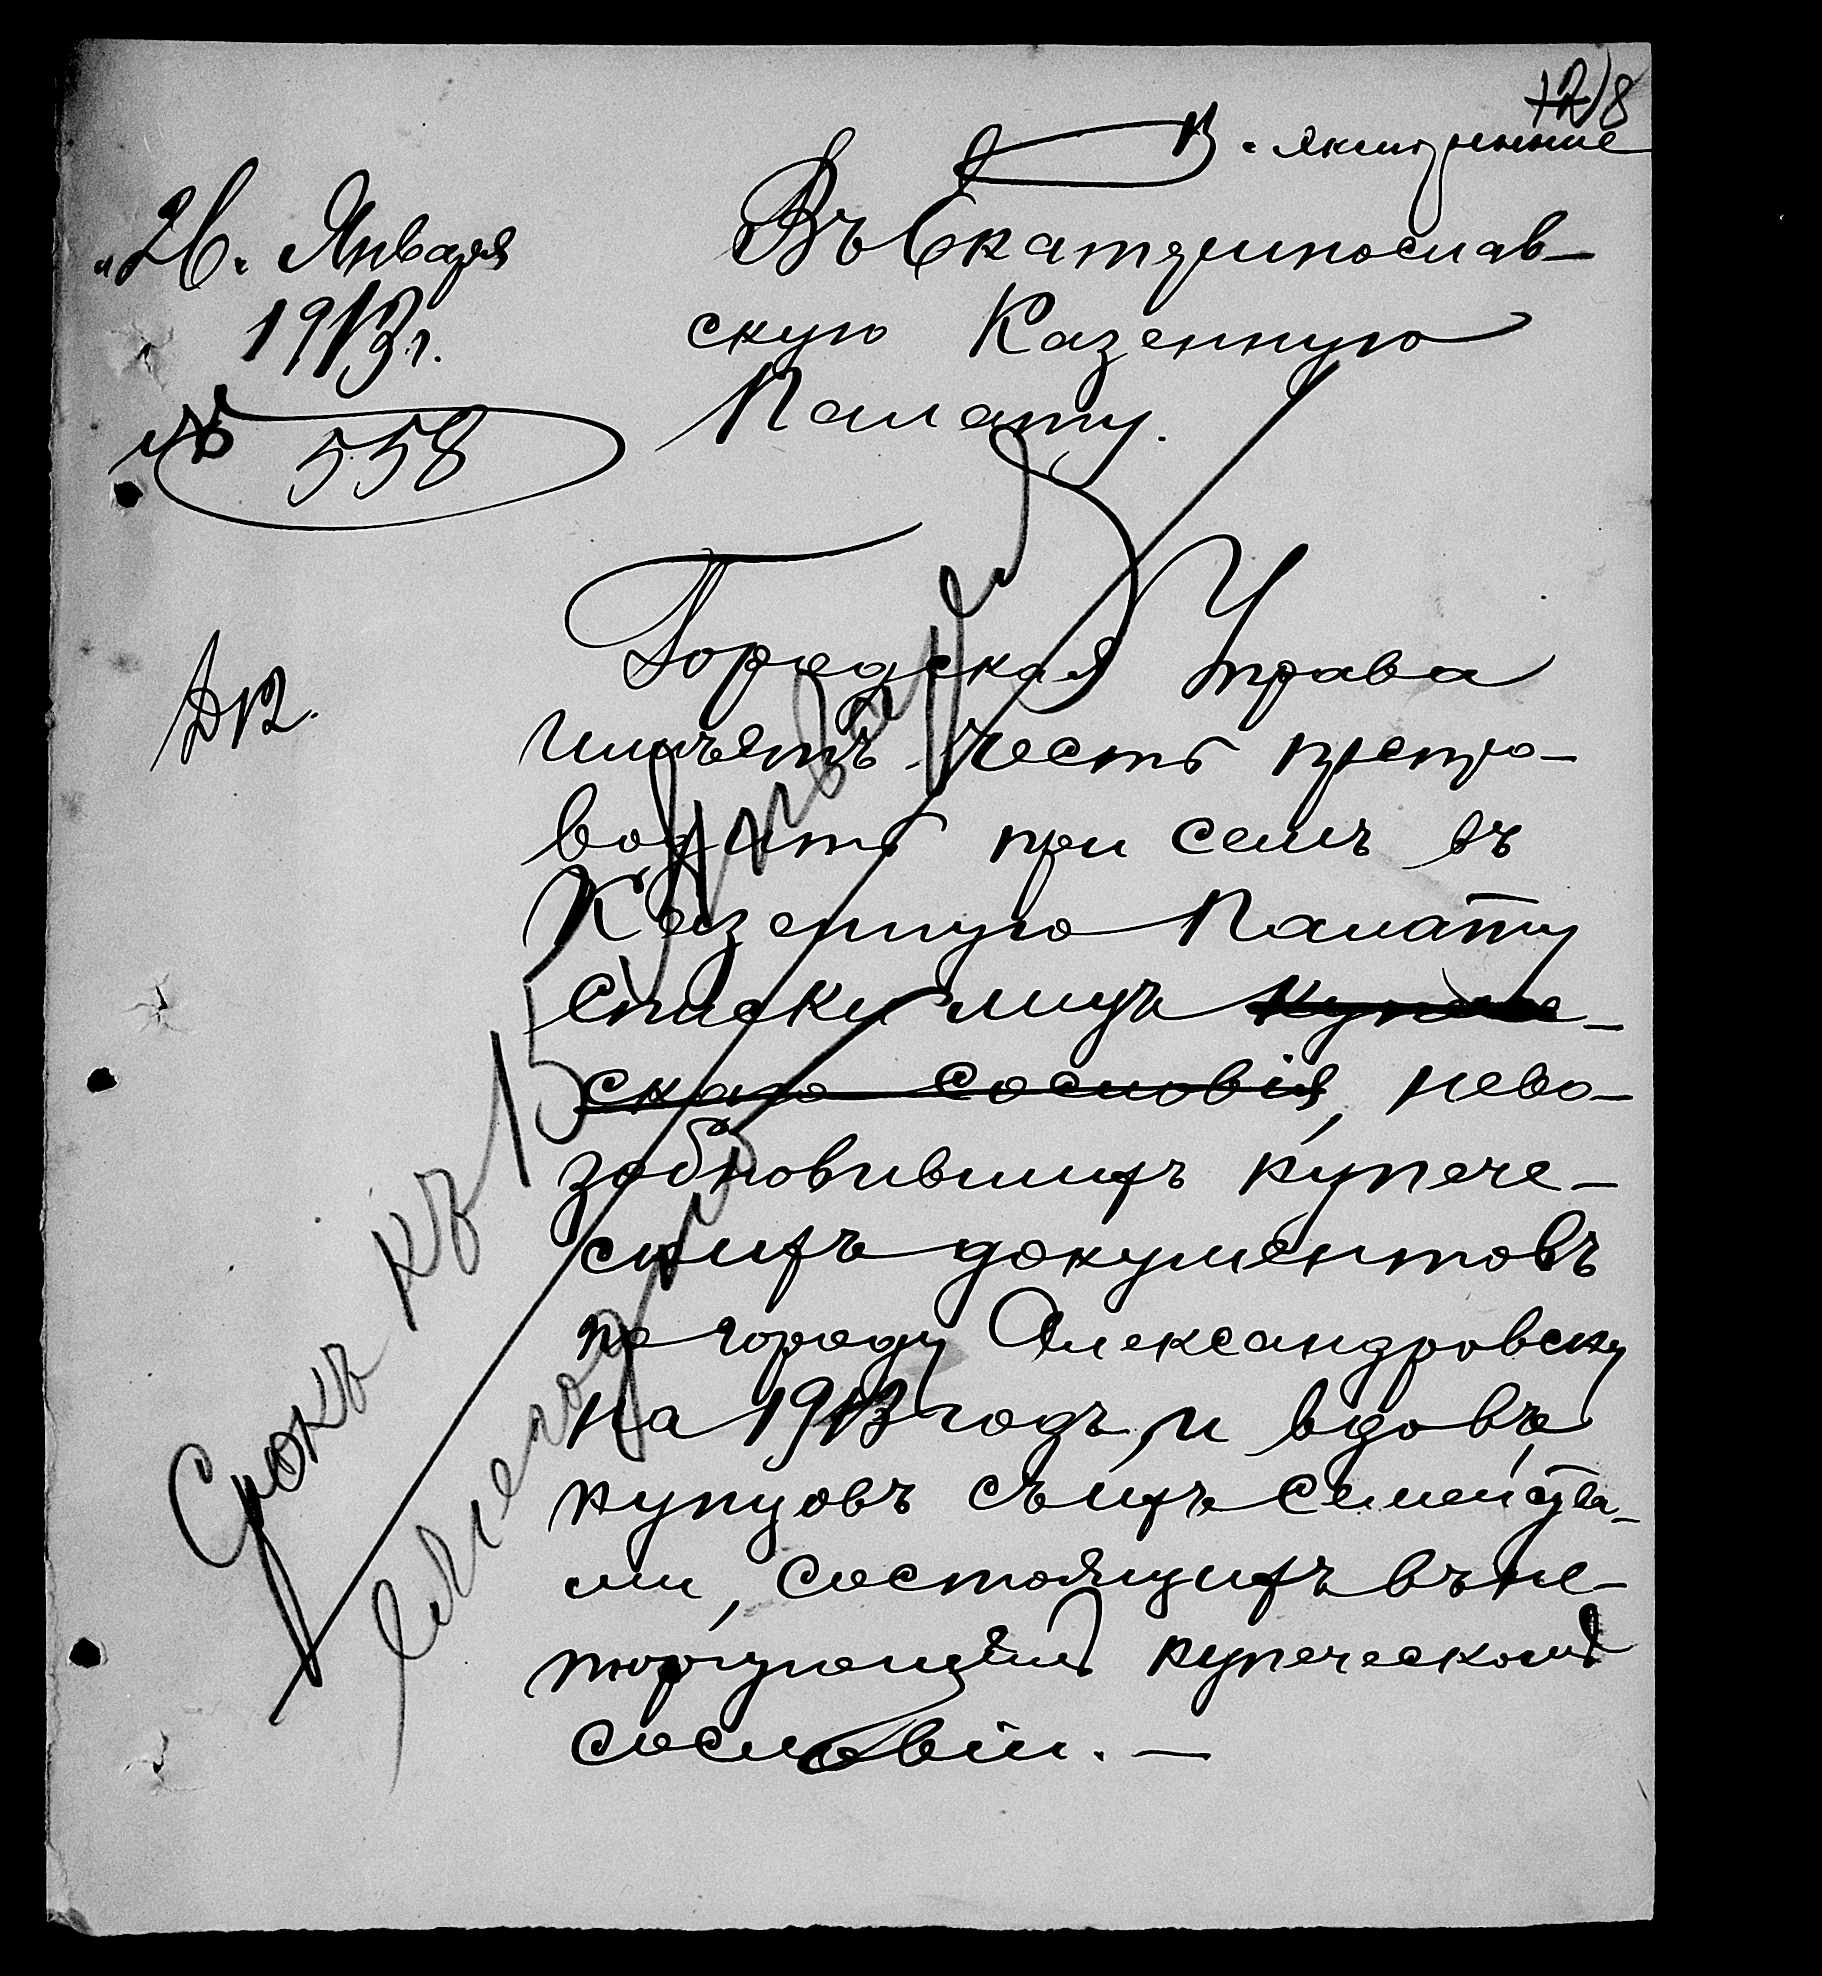 12/8
„26" Января
1913 г.
№ 558
Въ Екатеринослав-
скую Казенную
Палату.
Городская Управа
имѣетъ честь препро-
водить при семъ въ
Казенную Палату
списки лицъ купече-
скаго сословія, нево-
зобновившихъ купече-
скихъ документовъ
по городу Александровску
на 1913 годъ, и вдовъ
купцовъ съ ихъ семейства-
ми, состоящихъ въ не-
торгующемъ купеческомъ
сословіи. —
Срокъ къ 15 Января
ежегодно